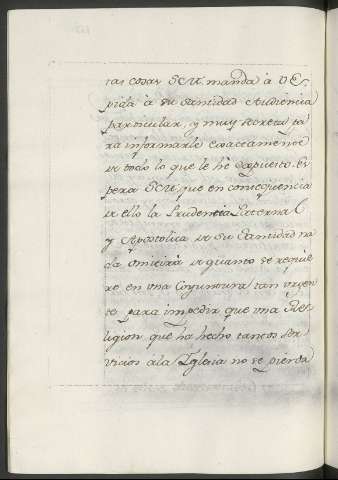 tas cosas SCM manda à VE,
pida à su Santidad Audiencia
particular, y muy secreta pa
ra informarle exactamente
de todo lo que le hè expuesto. Es
pera SCM, que en conseqüencia
de ello la Prudencia Paternal
y Apostolica de su Santidad na
da omitirà de quanto se requie
re en una Coyuntura tan urgen
te para impedir que una Re
ligion que ha hecho tantos ser
vicios ala Iglesia no se pierda